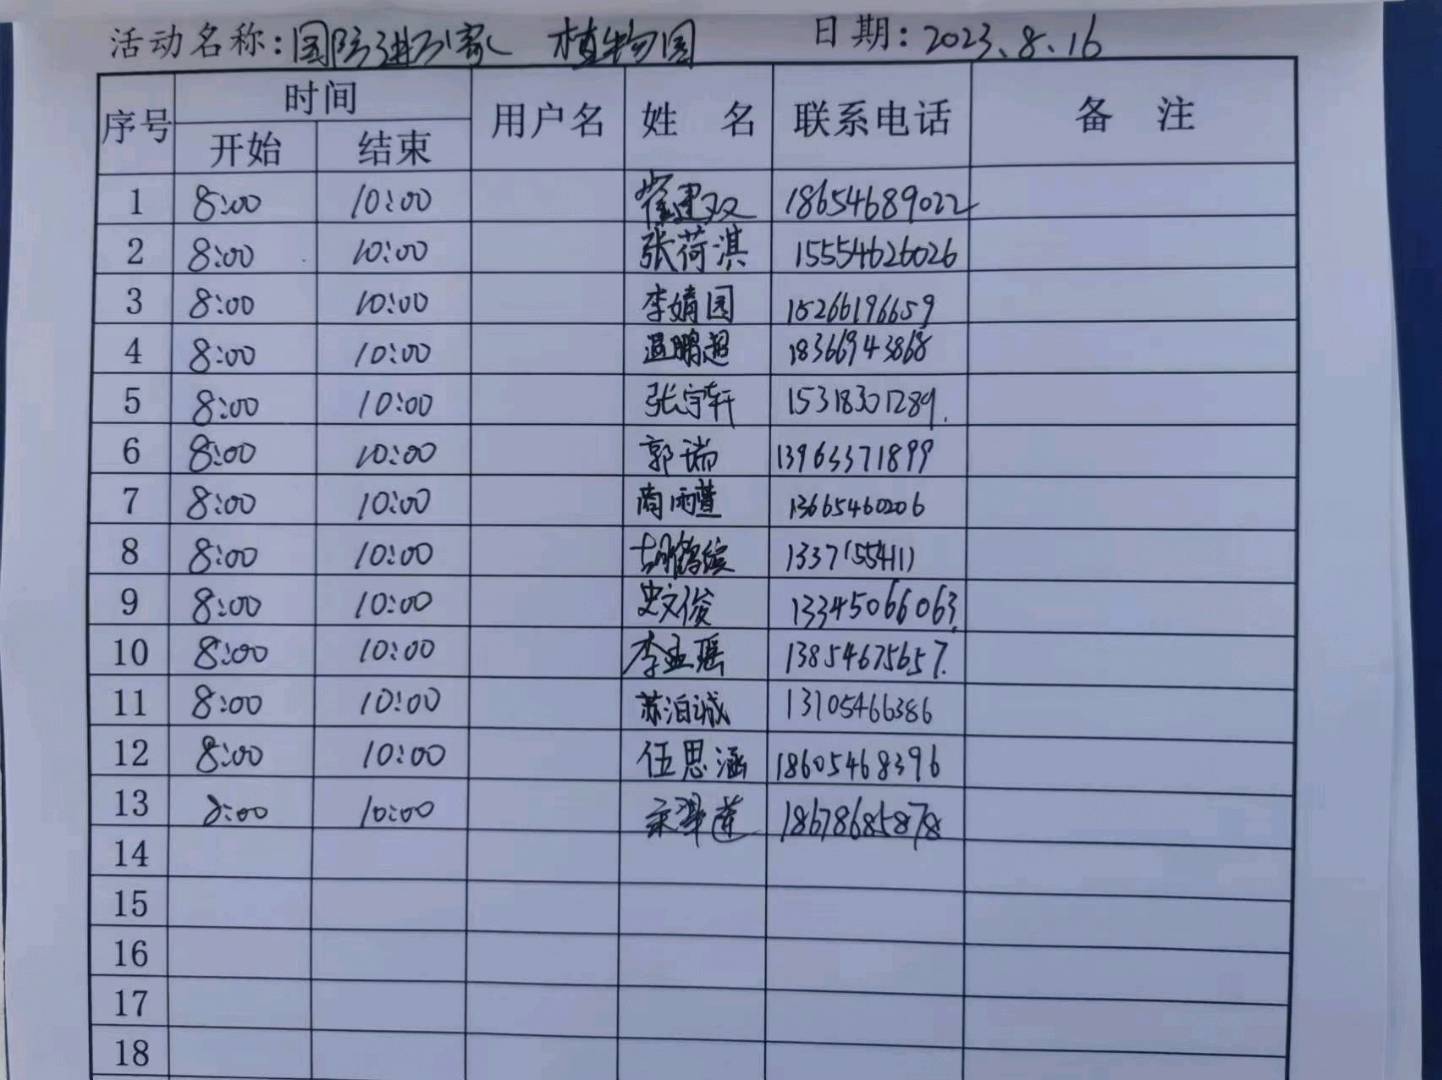 活动名称：国防进万家 植物园 日期：2023.8.16
序号 时间 用户名 姓 名 联系电话 备 注
开始 结束
1 8:00 10:00 崔建双 18654689022
2 8:00 10:00 张荷淇 15554626026
3 8:00 10:00 李婧园 15266196659
4 8:00 10:00 温鹏超 18366943868
5 8:00 10:00 张宇轩 15318301289.
6 8:00 10:00 郭瑞 13963371899
7 8:00 10:00 商雨萱 13665460206
8 8:00 10:00 13371554111
9 8:00 10:00 史文俊 13345066063.
10 8:00 10:00 李孟瑶 13854675657.
11 8:00 10:00 苏泊诚 13105466386
12 8:00 10:00 伍思涵 18605468396
13 8:00 10:00 18678685878
14
15
16
17
18